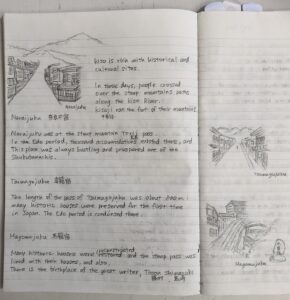 Kiso is rich with historical and
cultural sites.
In those days, people crossed
over the steep mountains paths
along the Kiso River.
Kisoji ran the foot of their mountains
Narai juku
Narai juku 奈良井宿
Narai juku was at the steep mountain Torii pass.
In the Edo period, thousand accommodations existed there, and
This place was always bustling and prosperous one of the
Tsumagojuku 妻籠宿
The length of the pass of Tsumagojuku was about
many historic houses were preserved for the first time
in Japan. The Edo period is condensed there.
Magomejuku 馬籠宿
Many historic houses were restored and the steep pass was
lined with their houses, and also,
There is the birthplace of the great writer, Toson Shimazaki
Tsumagojuku
Magomejuku